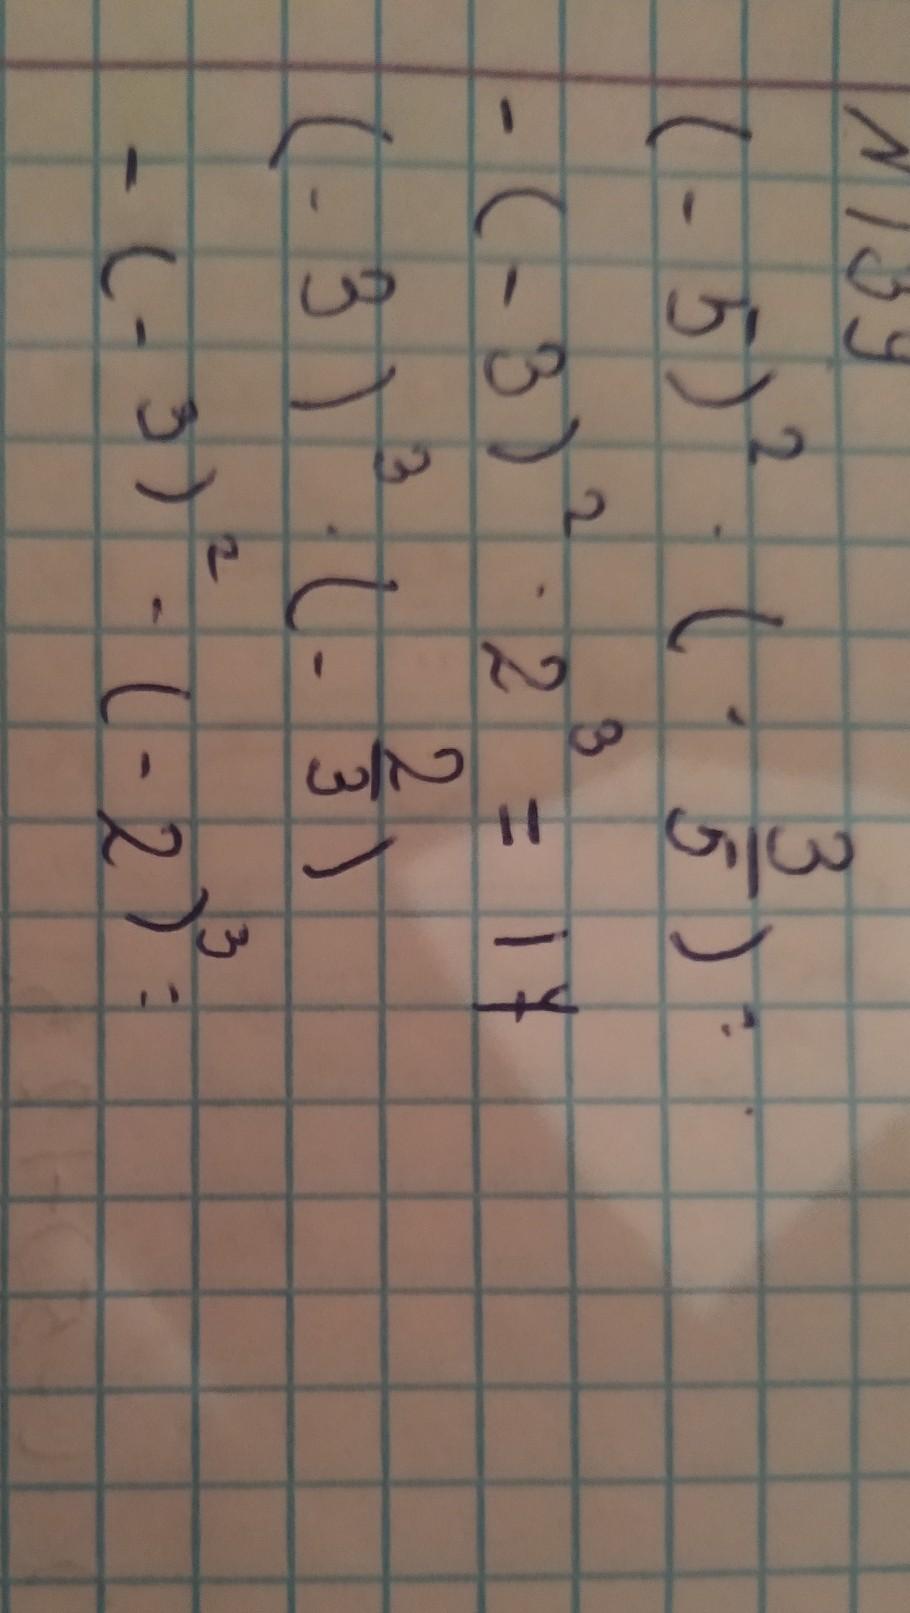 N 139
(-5)² · (-3/5) =
-(-3)² · 2³ = 17
(-3)³ · (-2/3)
-(-3)² - (-2)³ =